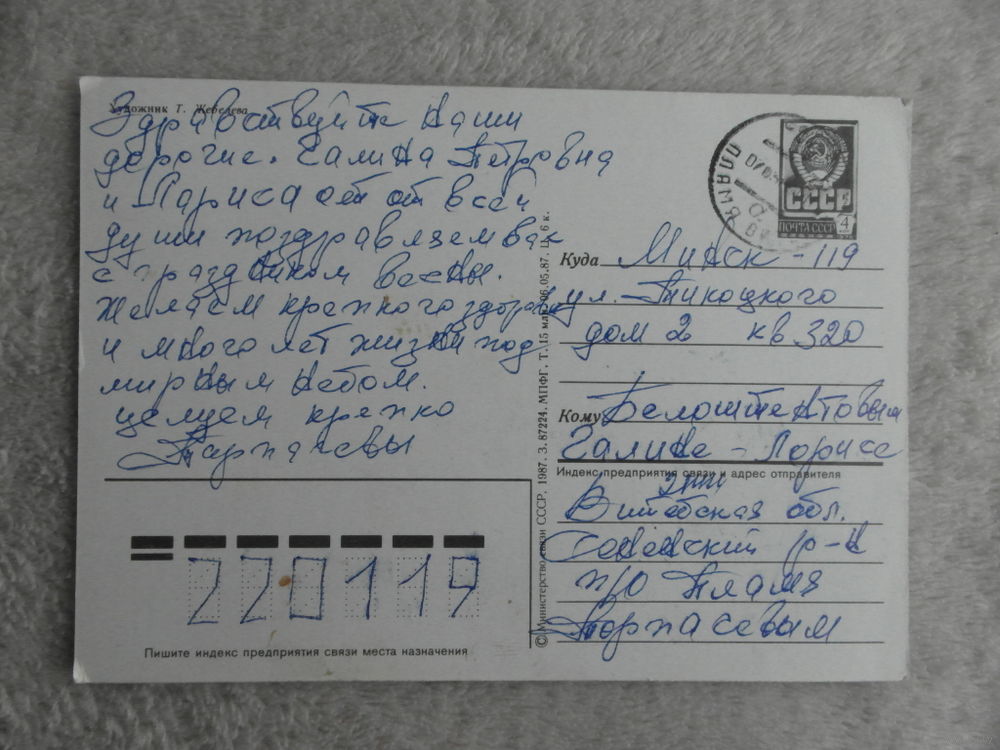 Художник Т. Жебелева
Здравствуйте Наши
дорогие. Галина Петровна
и Лариса от от всей
души поздравляем вас
с праздником весны.
Желаем крепкого здоровья
и много лет жизни под
мирным небом.
целуем крепко
СССР
ПОЧТА СССР 4
Куда Минск-119
ул. Тикоцкого
дом 2 кв 320
Кому Белоштентовым
Галине - Ларисе
Индекс предприятия связи и адрес отправителя
Витебская обл.
Сенненский р-н
п/о Пламя
220119
Пишите индекс предприятия связи места назначения
© Министерство связи СССР. 1987. З. 87224. МПФГ. Т. 15 млн. 06.05.87. Ц. 6 к.